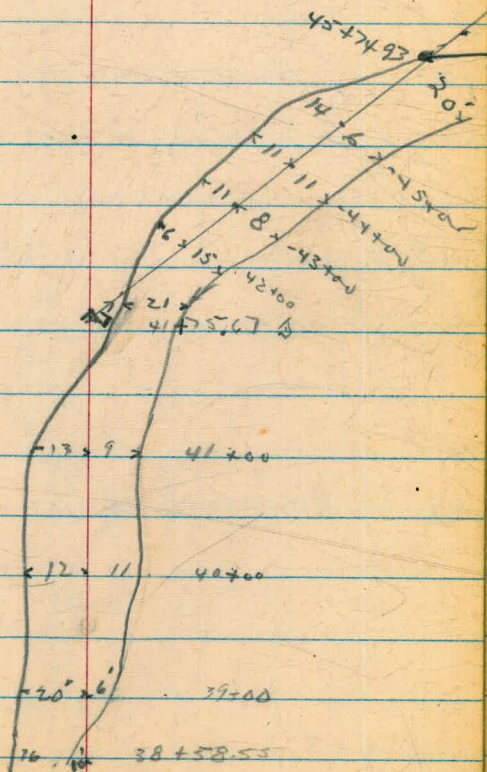 45+74.93
20'
14 6 -45+00
11 11 -44+00
11 8 -43+00
6 15 42+00
21
41+75.67 △
13 9 41+00
12 11 40+00
20' 6' 39+00
16 38+58.55